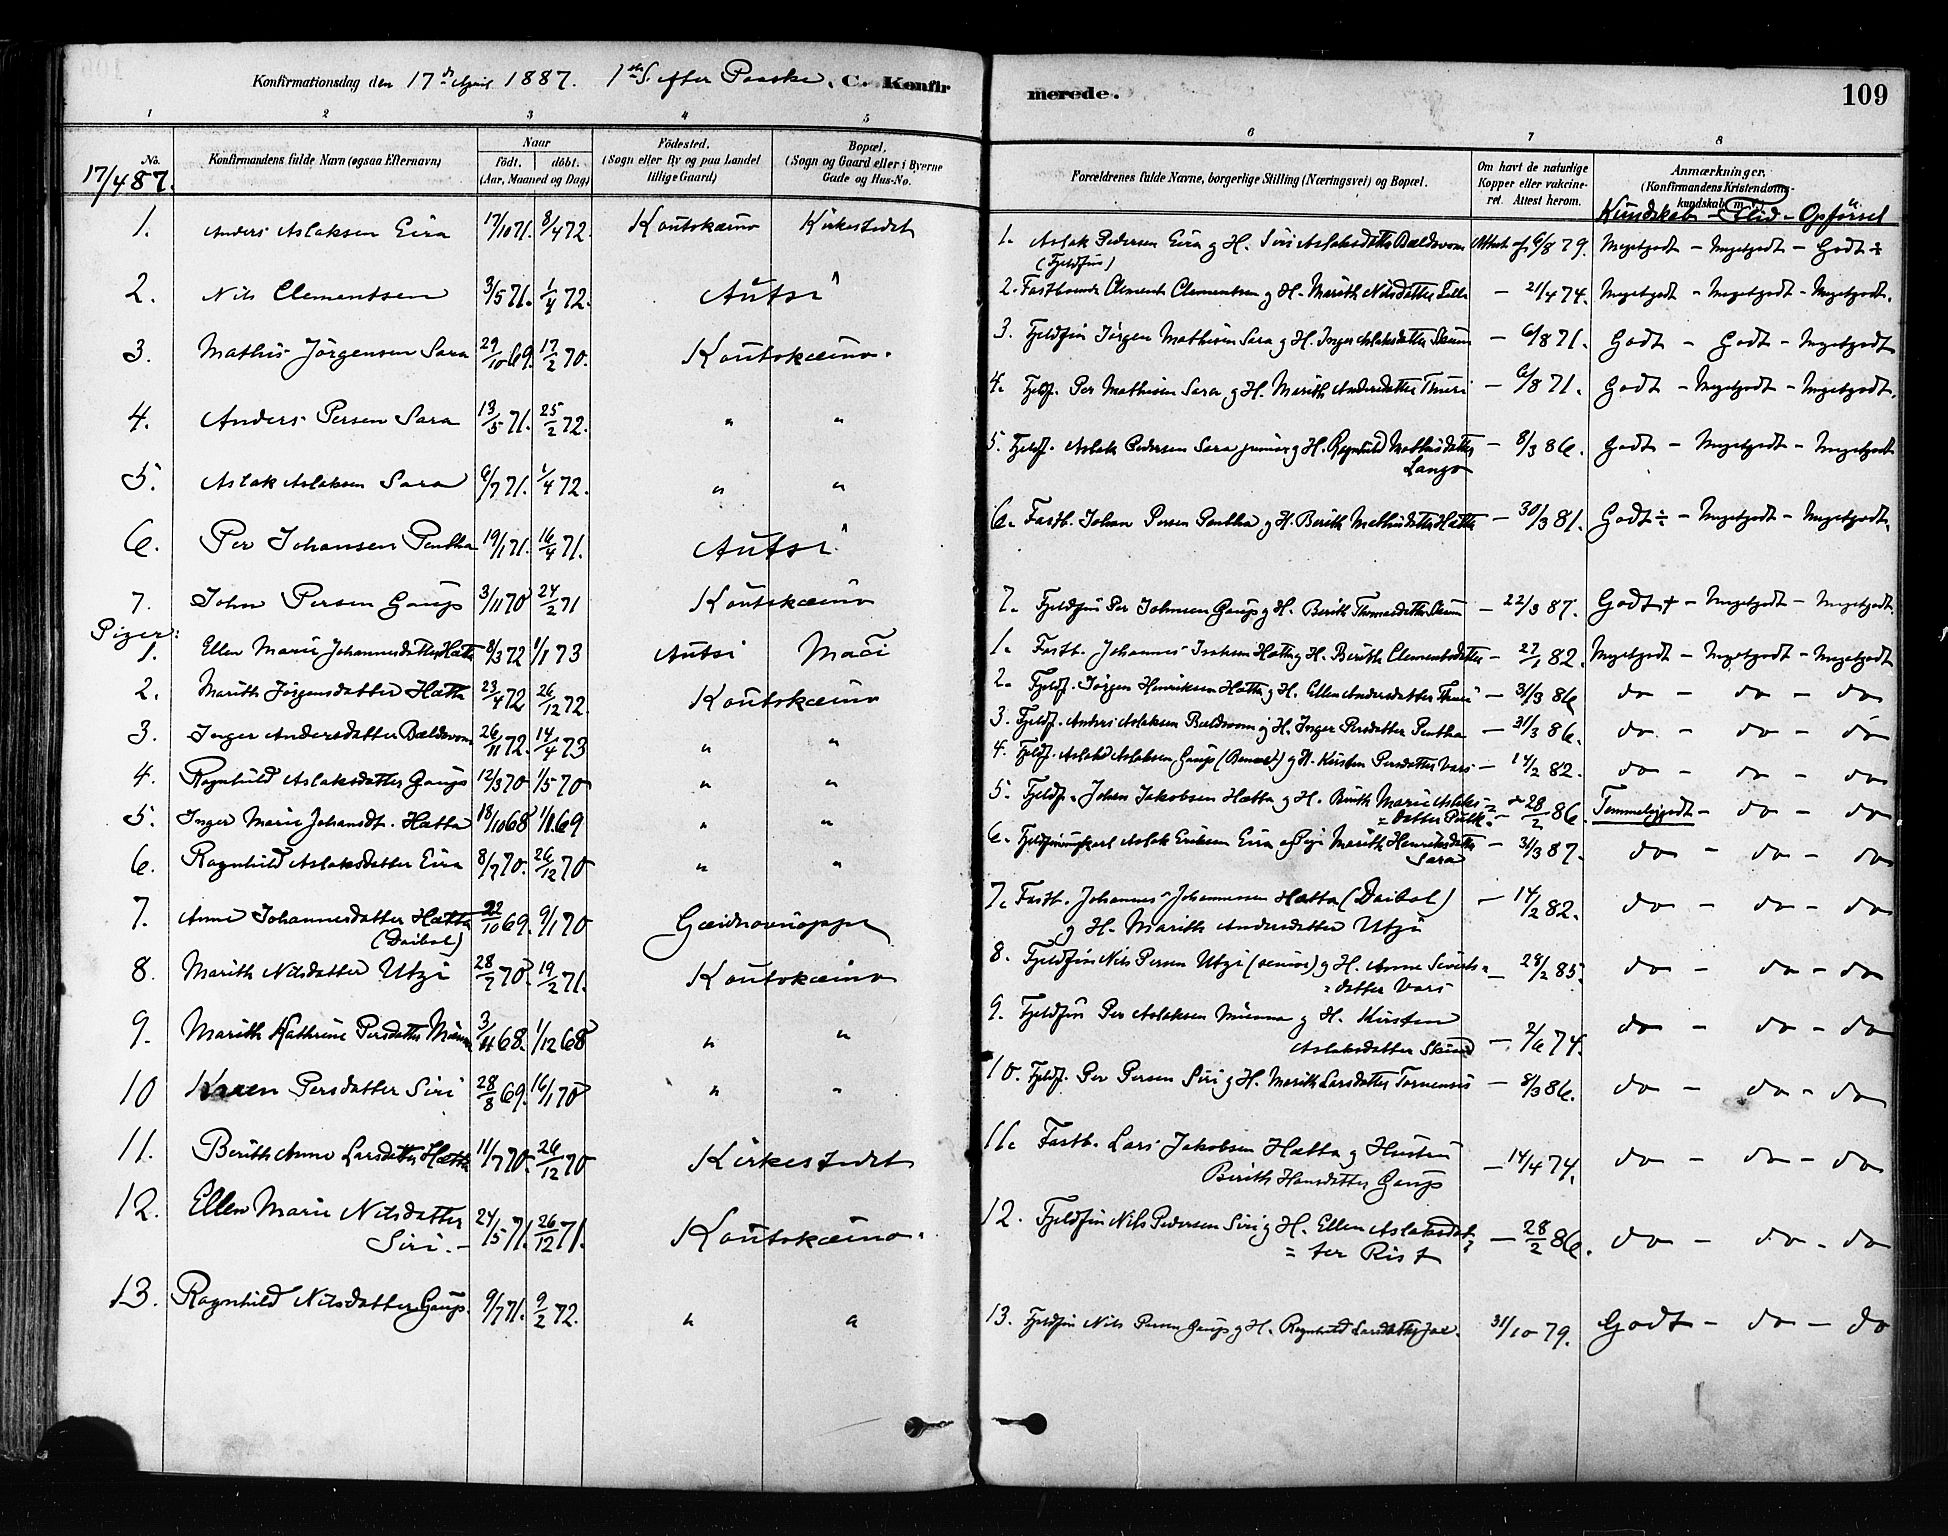 Konfirmationsdag den 17de April 1887. 1ste S. efter Paaske. C. Konfirmerede. 109
1 2 3 4 5 6 7 8
No. 17/4 87.
Konfirmandens fulde Navn (ogsaa Efternavn)
Naar födt. döbt. (Aar, Maaned og Dag)
Födested. (Sogn eller By og paa Landet tillige Gaard)
Bopæl. (Sogn og Gaard eller i Byerne Gade og Hus-No.
Forældrenes fulde Navne, borgerlige Stilling (Næringsvei) og Bopæl.
Om havt de naturlige Kopper eller vakcineret. Attest herom.
Anmærkninger. (Konfirmandens Kristendomskundskab m. v.)
Kundskab - Flid - Opförsel
1. Anders Aslaksen Eira 17/10 71. 8/4 72. Koutokæino Kirkestedet
1. Aslak Pedersen Eira g H. Siri Aslaksdatter Bældovom (Fjeldfin) Attest af 6/8 79. Megetgodt - Megetgodt - Godt ÷
2. Nils Clementsen 3/5 71. 1/4 72. Autsi
2. Fastboende Clement Clementsen g H. Marith Nilsdatter - 21/4 74. Megetgodt - Megetgodt - Megetgodt.
3. Mathis Jörgensen Sara 29/10 69. 17/2 70. Koutokæino.
3. Fjeldfin Jörgen Mathisen Sara g H. Inger Aslaksdatter - 6/8 71. Godt - Godt - Megetgodt
4. Anders Persen Sara 13/5 71. 25/2 72. " "
4. Fjeldf. Per Mathisen Sara g H. Marith Andersdatter Thuri - 6/8 71. Godt - Megetgodt - Megetgodt.
5. Aslak Aslaksen Sara 6/7 71. 1/4 72. " "
5. Fjeldf. Aslak Pedersen Sara junior g H. Ragnhild Mathisdatter Lango - 8/3 86. Godt - Megetgodt - Megetgodt
6. Per Johansen Pentha 19/1 71. 16/4 71. Autsi
6. Fastb. Johan Persen Pentha g H. Berith Mathisdatter Hætta - 30/3 81. Godt ÷ - Megetgodt - Megetgodt.
7. John Persen Gaup 3/11 70 24/2 71 Koutokæino
7. Fjeldfin Per Johnsen Gaup g H. Berith Thomasdatter - 22/3 87. Godt + - Megetgodt - Megetgodt.
Piger:
1. Ellen Marie Johannesdatter Hætta 8/3 72 1/1 73 Autsi Maci
1. Fastb. Johannes Isaksen Hætta g H. Berith Clementsdatter - 27/1 82. Megetgodt - Megetgodt - Megetgodt
2. Marith Jörgensdatter Hætta 23/4 72 26/12 72. Koutokæino
2. Fjeldf. Jörgen Henriksen Hætta g H. Ellen Andersdatter Thuri - 31/3 86 do - do - do
3. Inger Andersdatter Bældovom 26/11 72. 14/4 73 " "
3. Fjeldf. Anders Aslaksen Bældovom g H. Inger Persdatter Pentha - 31/3 86. do - do - do
4. Ragnhild Aslaksdatter Gaup 12/3 70 1/5 70 " "
4. Fjeldf. Aslak Aslaksen Gaup g H. Kirsten Persdatter Vars - 14/2 82. do - do - do
5. Inger Marie Johansdt. Hætta 18/10 68 1/1 69 " "
5. Fjeldf. Johan Jakobsen Hætta g H. Berith Marie Aslaksdatter - 28/2 86. Temmeliggodt - do - do
6. Ragnhild Aslaksdatter Eira 8/7 70. 26/12 70 " "
6. Fjeldfinungkarl Aslak Eriksen Eira g Pige Marith Henriksdatter Sara - 31/3 87. do - do - do
7. Anne Johannesdatter Hætta (Daibal) 22/10 69. 9/1 70
7. Fastb. Johannes Johannessen Hætta (Daibal) g H. Marith Andersdatter Utzi - 14/2 82. do - do - do
8. Marith Nilsdatter Utzi 28/7 70. 19/2 71. Koutokæino
8. Fjeldfin Nils Persen Utzi (senior) g H. Anne Sivertsdatter Vars - 28/2 85. do - do - do
9. Marith Kathrine Persdatter 3/11 68. 1/12 68 " "
9. Fjeldfin Per Aslaksen g H. Kirsten Aslaksdatter - 2/6 74. do - do - do
10 Karen Persdatter Siri 28/8 69. 16/1 70 " "
10. Fjeldf. Per Persen Siri g H. Marith Larsdatter Tornensis - 8/3 86. do - do - do
11. Berith Anne Larsdatter Hætta 11/7 70. 26/12 70 Kirkestedet
11. Fastb. Lars Jakobsen Hætta g Hustru Berith Hansdatter Gaup - 14/4 74. do - do - do
12. Ellen Marie Nilsdatter Siri. 24/5 71. 26/12 71. Koutokæino.
12. Fjeldfin Nils Pedersen Siri g H. Ellen Aslaksdatter Rist - 28/2 86. do - do - do
13. Ragnhild Nilsdatter Gaup. 9/7 71. 9/2 72. " "
13. Fjeldfin Nils Persen Gaup g H. Ragnhild Larsdatter 31/10 79. Godt - do - do